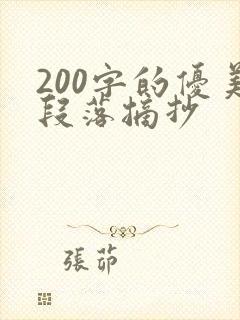 200字的優美
段落摘抄
張茆